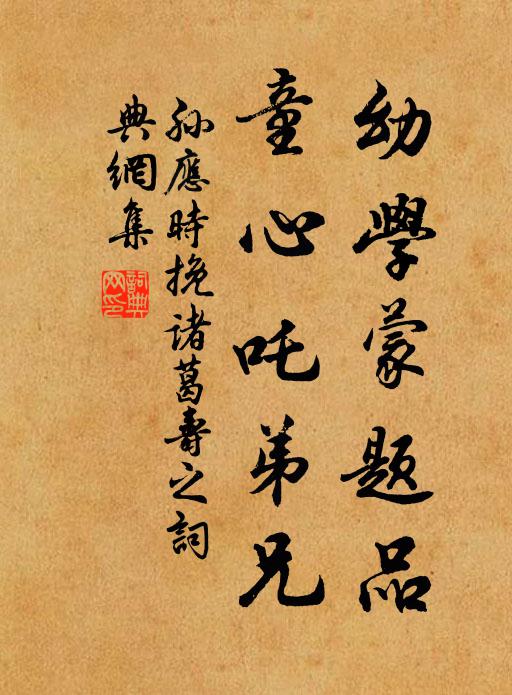 幼學蒙題品
童心吒弟兄
孫應時挽諸葛壽之詞
典網集
詞典網印